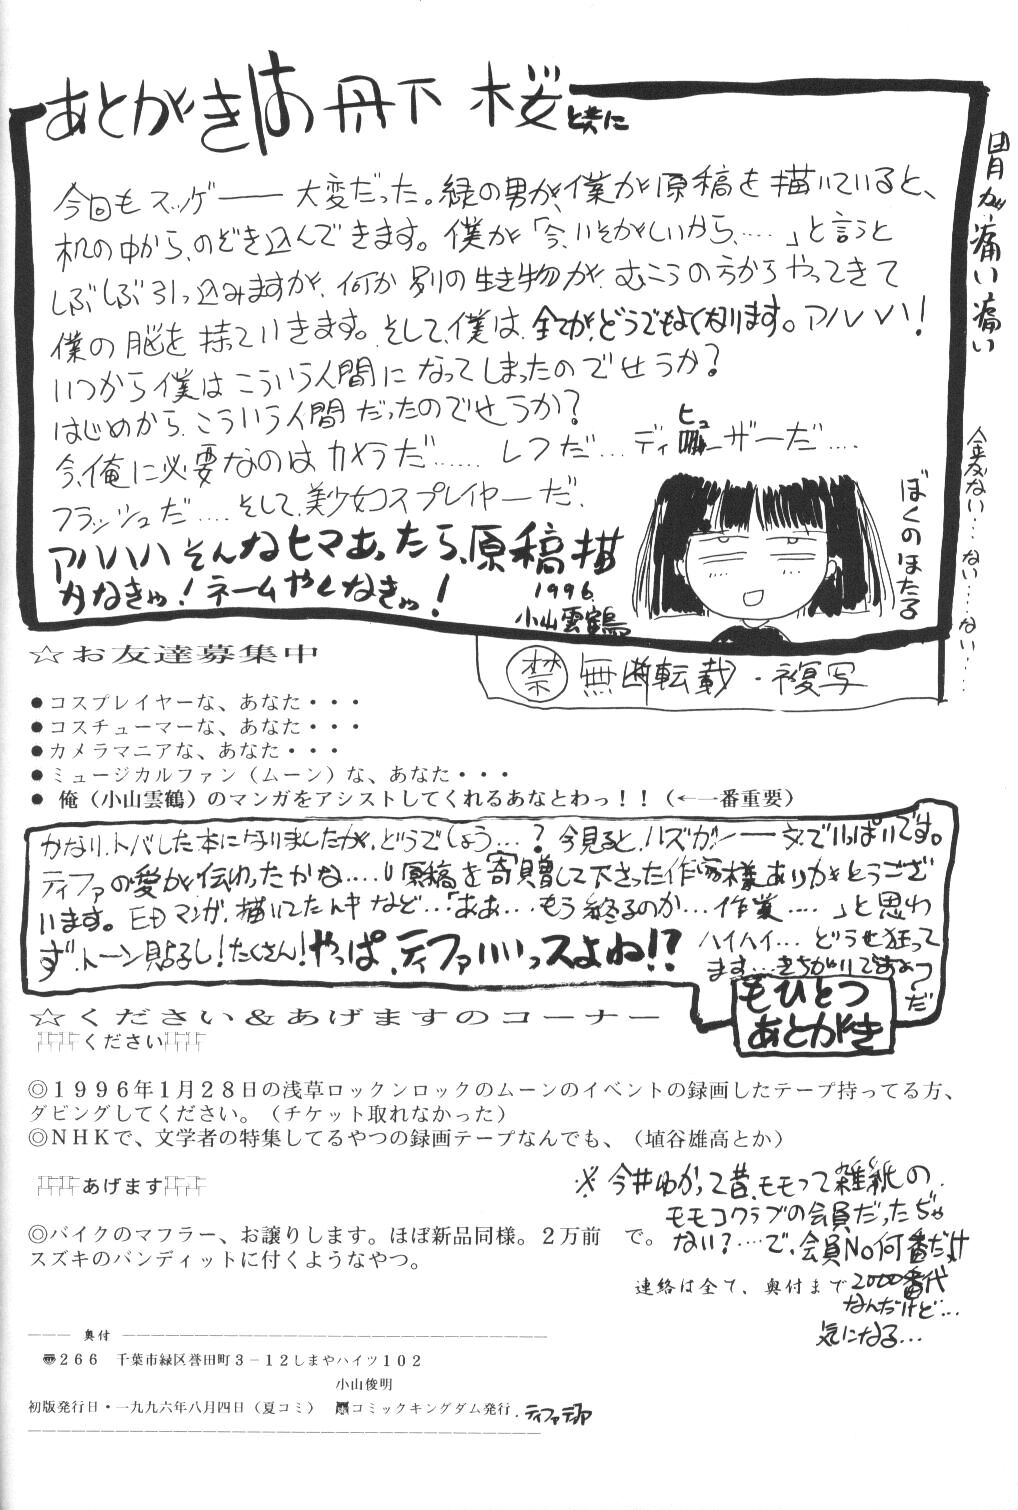 あとがきは丹下桜と共に
今回もスッゲー── 大変だった。緑の男が、僕が原稿を描いていると、
机の中から、のぞき込んできます。僕が「今、いそがしいから、‥‥」と言うと
しぶしぶ引っ込みますが、何か別の生き物が、むこうの方からやってきて
僕の脳を持っていきます。そして、僕は、全てが、どうでもよくなります。アハハハ！
いつから僕はこういう人間になってしまったのでせうか？
はじめから、こういう人間だったのでせうか？
今、俺に必要なのはカメラだ…… レフだ… ディヒューザーだ….
フラッシュだ….そして、美少女コスプレイヤーだ.
アハハハ そんなヒマあったら、原稿描
かなきゃ！ネームやんなきゃ！
1996.
小山雲鶴
ぼくのほたる
胃が痛い痛い
金がない…ない…ない…
禁 無断転載・複写
☆お友達募集中
●コスプレイヤーな、あなた・・・
●コスチューマーな、あなた・・・
●カメラマニアな、あなた・・・
●ミュージカルファン（ムーン）な、あなた・・・
● 俺（小山雲鶴）のマンガをアシストしてくれるあなとわっ！！（←一番重要）
かなり、トバした本になりましたが、どうでしょう…？今見ると、ハズガシ──文でいっぱいです。
ティファの愛が伝わったかな…．原稿を寄贈して下さった作家様ありがとうござ
います。EDマンガ、描いてたん中など…「ああ…もう終るのか…作業….」と思わ
ず、トーン貼るし！たくさん！やっぱ、ティファいいっスよね!?
ハイハイ…どうせ狂って
ます…きちがいですよっ
だ
もひとつ
あとがき
☆ください＆あげますのコーナー
ください
◎１９９６年１月２８日の浅草ロックンロックのムーンのイベントの録画したテープ持ってる方、
ダビングしてください。（チケット取れなかった）
◎ＮＨＫで、文学者の特集してるやつの録画テープなんでも、（埴谷雄高とか）
あげます
◎バイクのマフラー、お譲りします。ほぼ新品同様。２万前　で。
スズキのバンディットに付くようなやつ。
※今井ゆかって昔、モモって雑紙の
モモコクラブの会員だったぢゃ
ない？…で、会員No何番だっけ
2000番代
なんだけど…
気になる…
連絡は全て、奥付まで
奥付
〠２６６　千葉市緑区誉田町３－１２しまやハイツ１０２
小山俊明
初版発行日・一九九六年八月四日（夏コミ）　コミックキングダム発行．ティファティファ